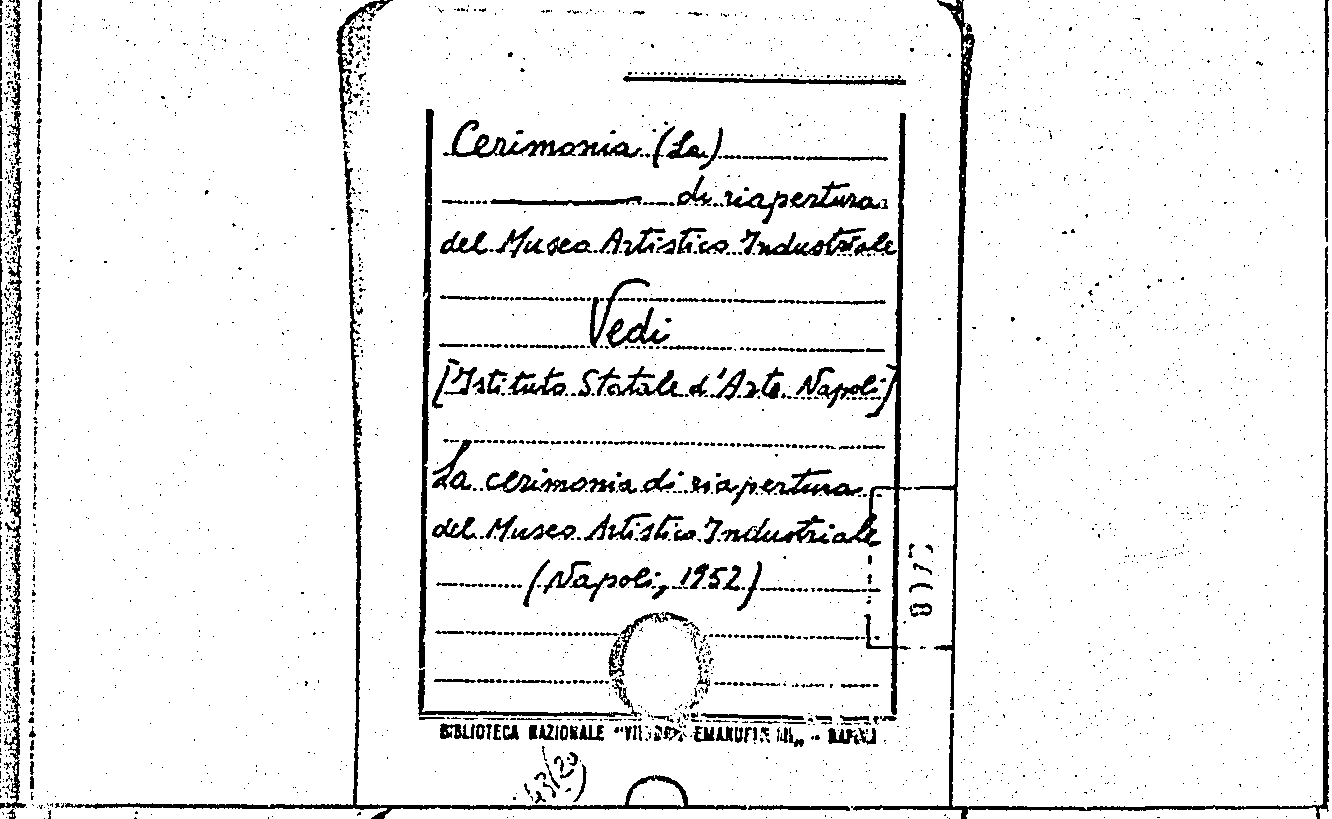 Cerimonia (La)
di riapertura
del Museo Artistico Industriale
Vedi
[Istituto Statale d'Arte. Napoli]
La cerimonia di riapertura
del Museo Artistico Industriale
(Napoli, 1952)
BIBLIOTECA NAZIONALE "VITTORIO EMANUELE III„ - NAPOLI